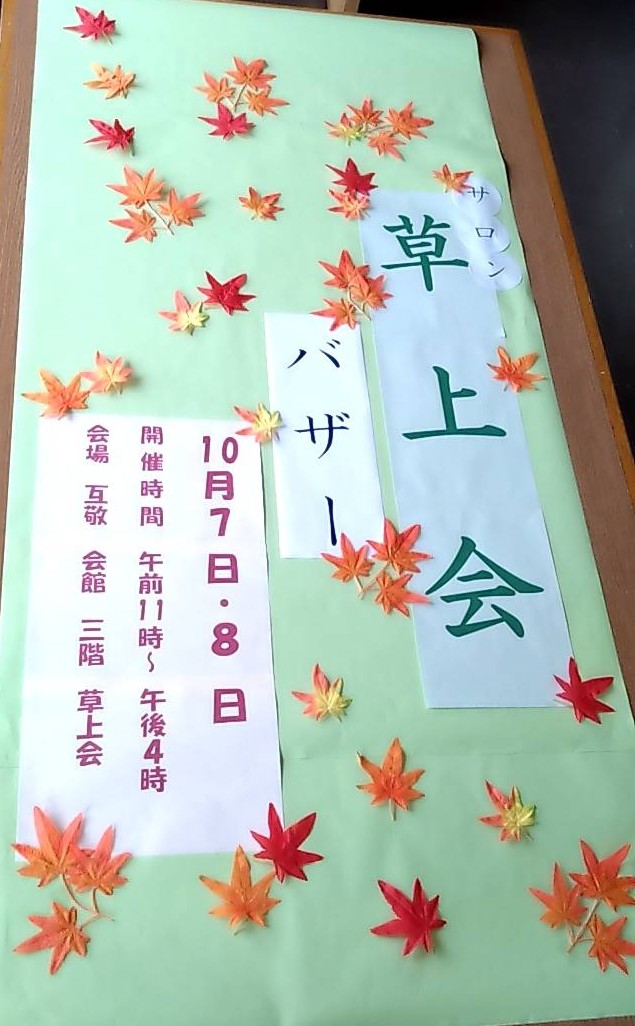 サロン
草上会
バザー
10月7日・8日
開催時間 午前11時~午後4時
会場 互敬会館 三階 草上会